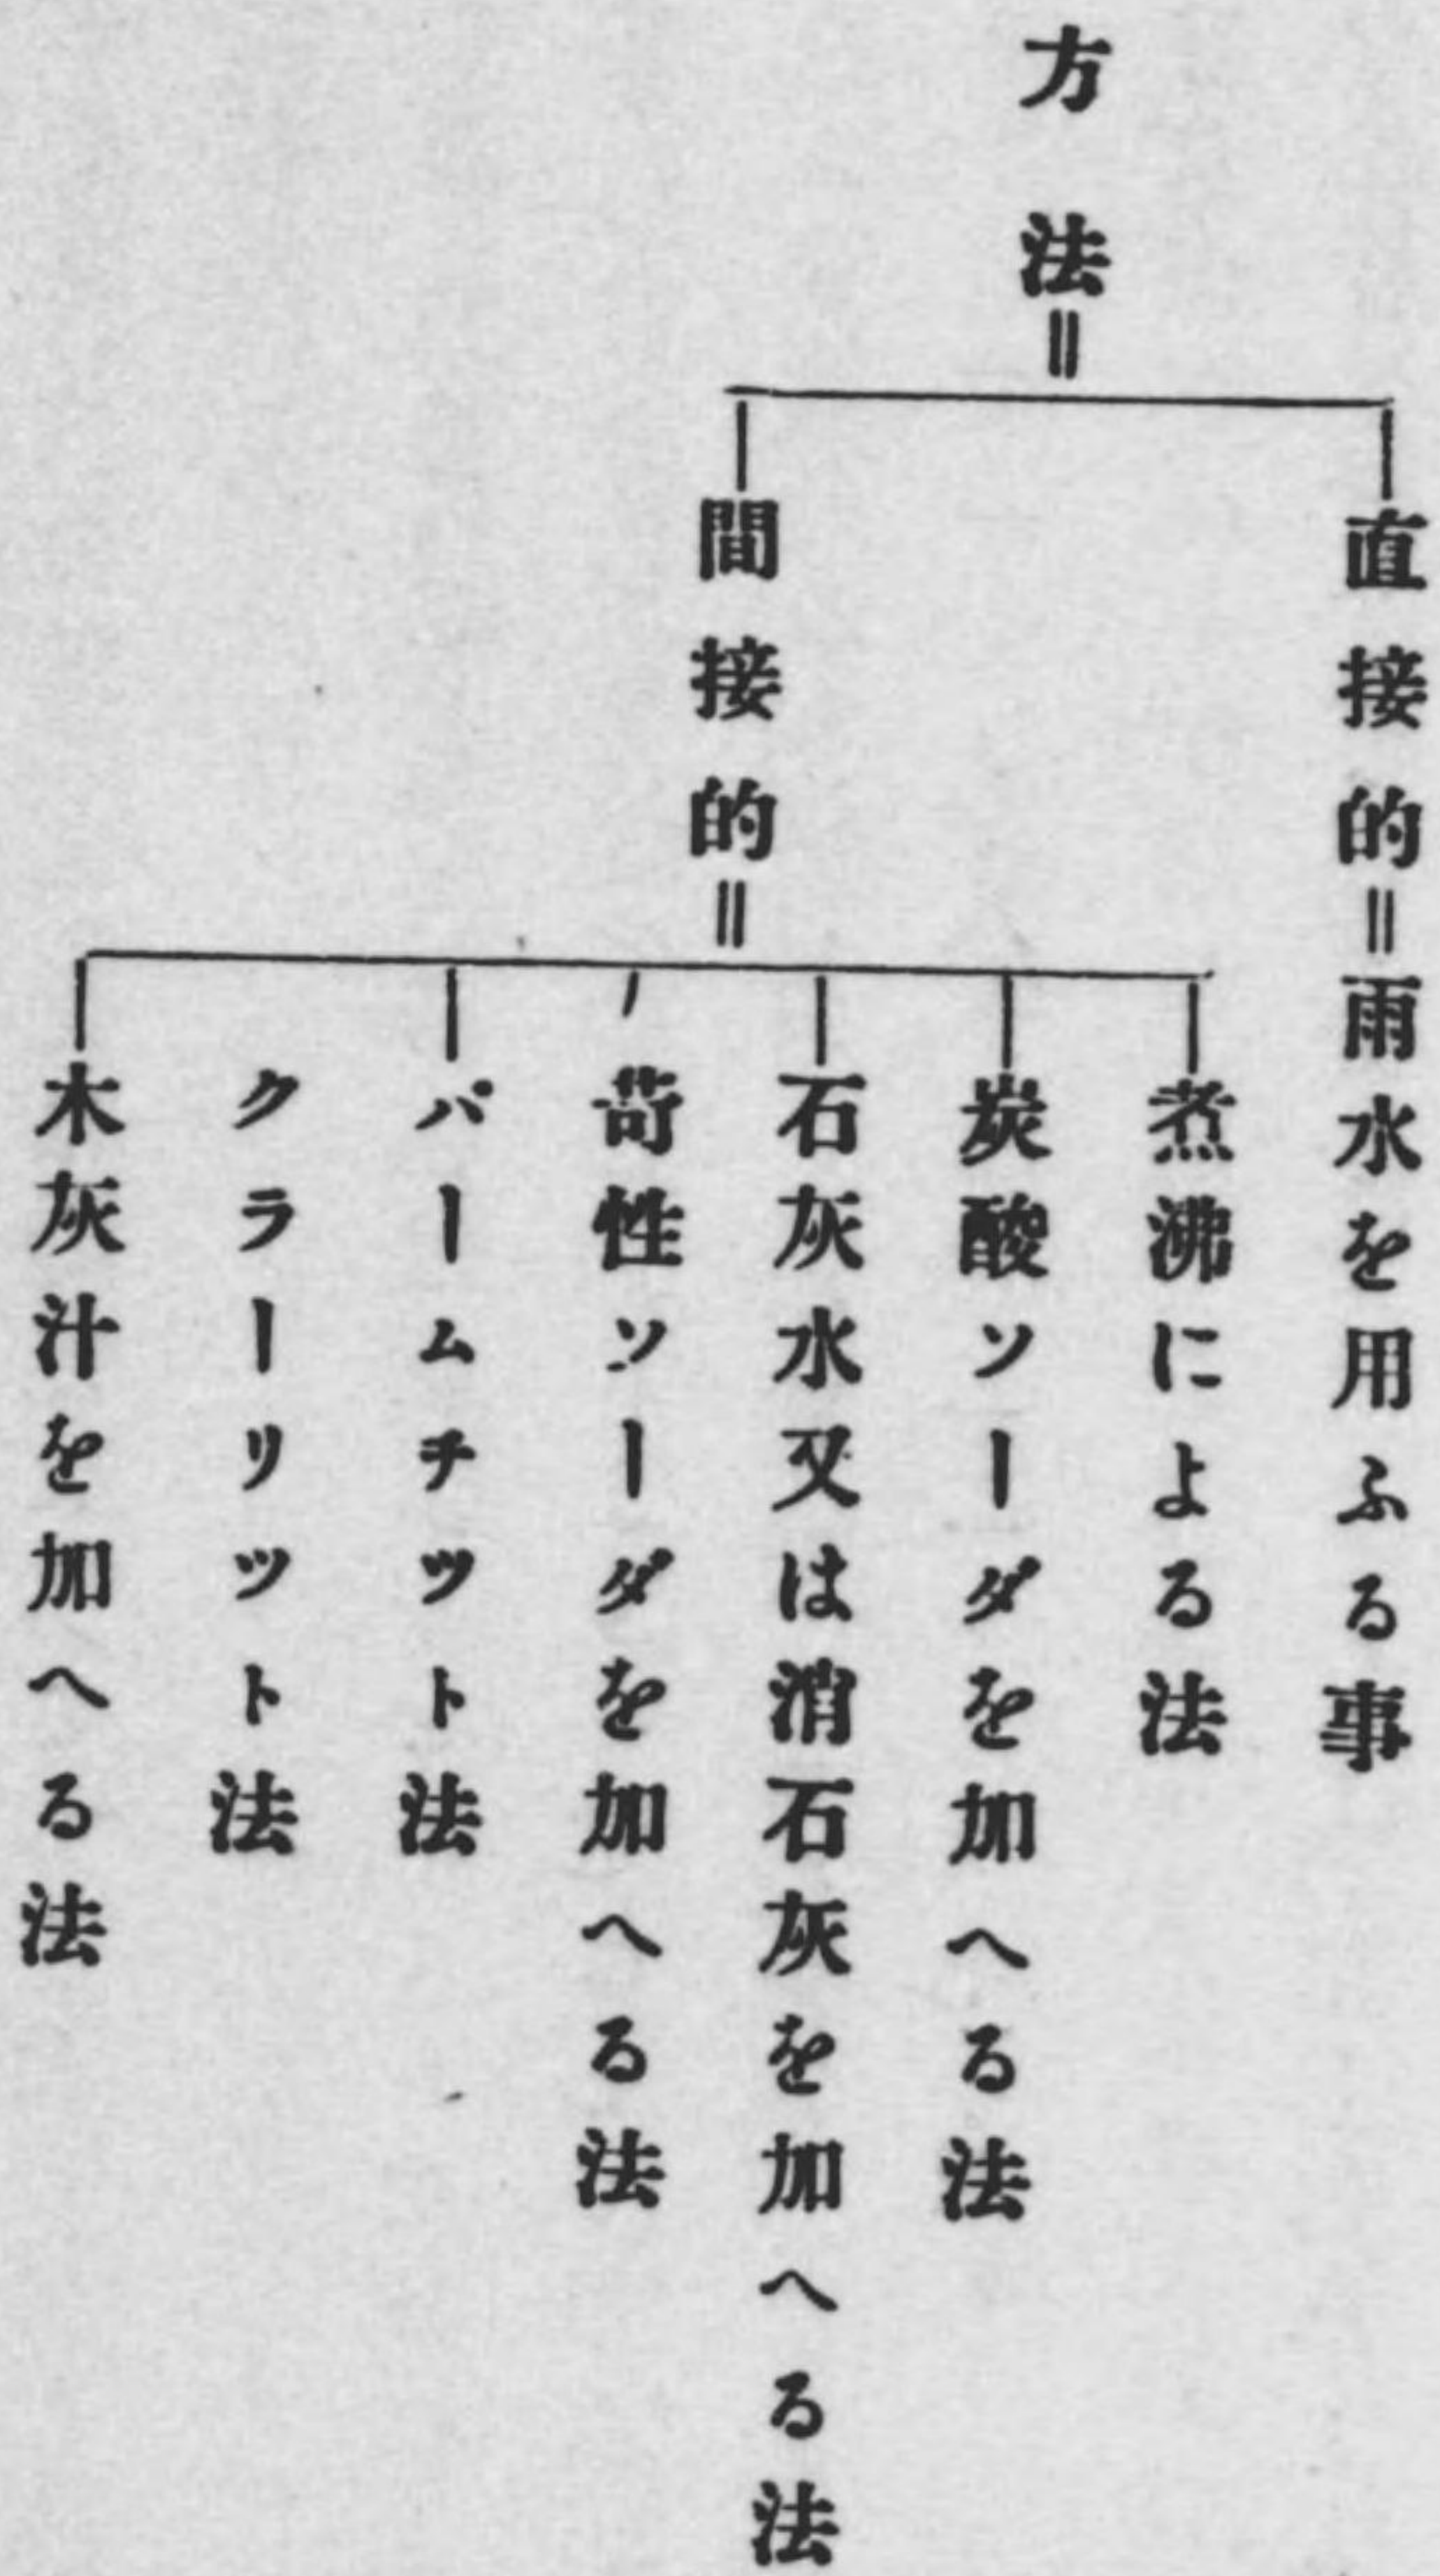 方法
直接的＝雨水を用ふる事
間接的
煮沸による法
炭酸ソーダを加へる法
石灰水又は消石灰を加へる法
苛性ソーダを加へる法
パームチット法
クラーリット法
木灰汁を加へる法